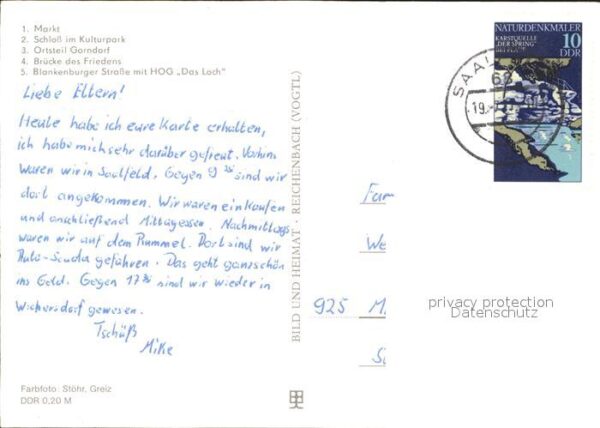 1. Markt
2. Schloß im Kulturpark
3. Ortsteil Gorndorf
4. Brücke des Friedens
5. Blankenburger Straße mit HOG „Das Loch"
Liebe Eltern!
Heute habe ich eure Karte erhalten,
ich habe mich sehr darüber gefreut. Vorhin
waren wir in Saalfeld. Gegen 9 sind wir
dort angekommen. Wir waren einkaufen
und anschließend Mittagessen. Nachmittags
waren wir auf dem Rummel. Dort sind wir
Auto-Scuda gefahren. Das geht ganz schön
ins Geld. Gegen 17 30 sind wir wieder in
Wickersdorf gewesen.
Tschüß
Mike
Farbfoto: Stöhr, Greiz
DDR 0,20 M
BILD UND HEIMAT · REICHENBACH (VOGTL)
NATURDENKMÄLER
KARSTQUELLE
„DER SPRING"
10
DDR
SAAL
68
19.
Fam
We
925 M
privacy protection
Datenschutz